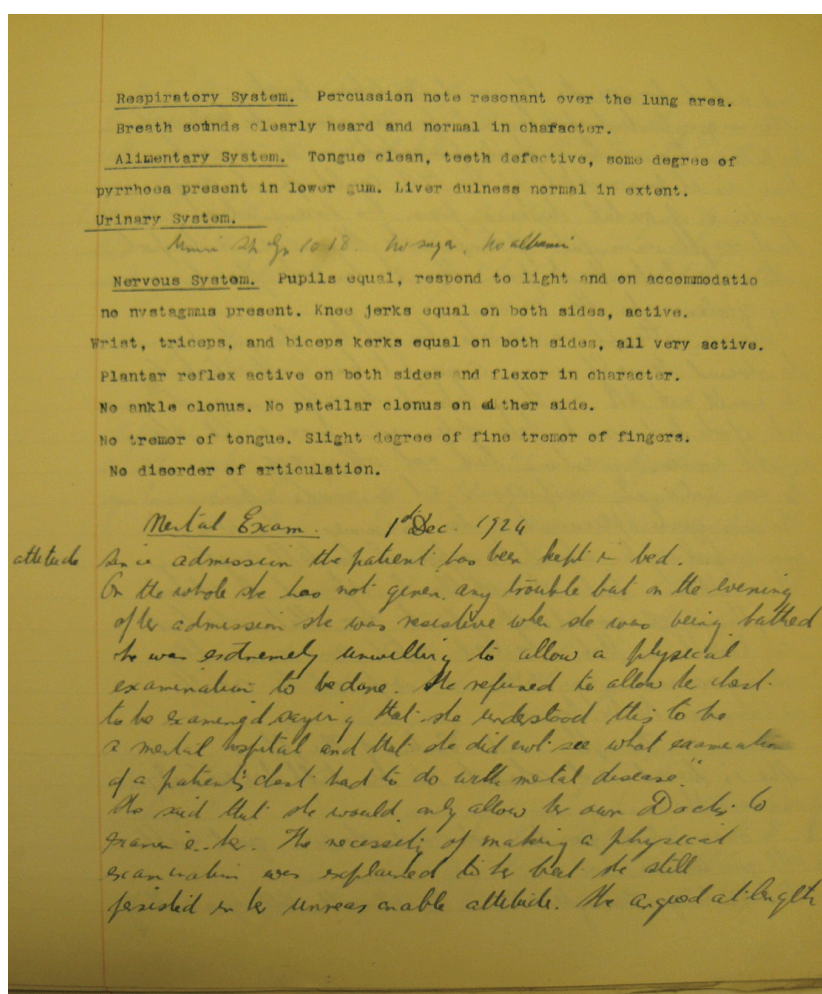 Respiratory System. Percussion note resonant over the lung area.
Breath sounds clearly heard and normal in character.
Alimentary System. Tongue clean, teeth defective, some degree of
pyrrhoea present in lower gum. Liver dulness normal in extent.
Urinary System.
Urine Sp Gr 1018. No sugar, No albumin
Nervous System. Pupils equal, respond to light and on accommodatio
no nystagmus present. Knee jerks equal on both sides, active.
Wrist, triceps, and biceps kerks equal on both sides, all very active.
Plantar reflex active on both sides and flexor in character.
No ankle clonus. No patellar clonus on either side.
No tremor of tongue. Slight degree of fine tremor of fingers.
No disorder of articulation.
Mental Exam. 1st Dec. 1924
attitude Since admission the patient has been kept in bed.
On the whole she has not given any trouble but on the evening
after admission she was resistive when she was being bathed
She was extremely unwilling to allow a physical
examination to be done. She refused to allow her chest
to be examined saying that she understood this to be
a mental hospital and that she did not see what examination
of a patient's chest had to do with metal disease."
She said that she would only allow her own Doctor to
examine her. The necessity of making a physical
examination was explained to her but she still
persisted in her unreasonable attitude. She argued at length